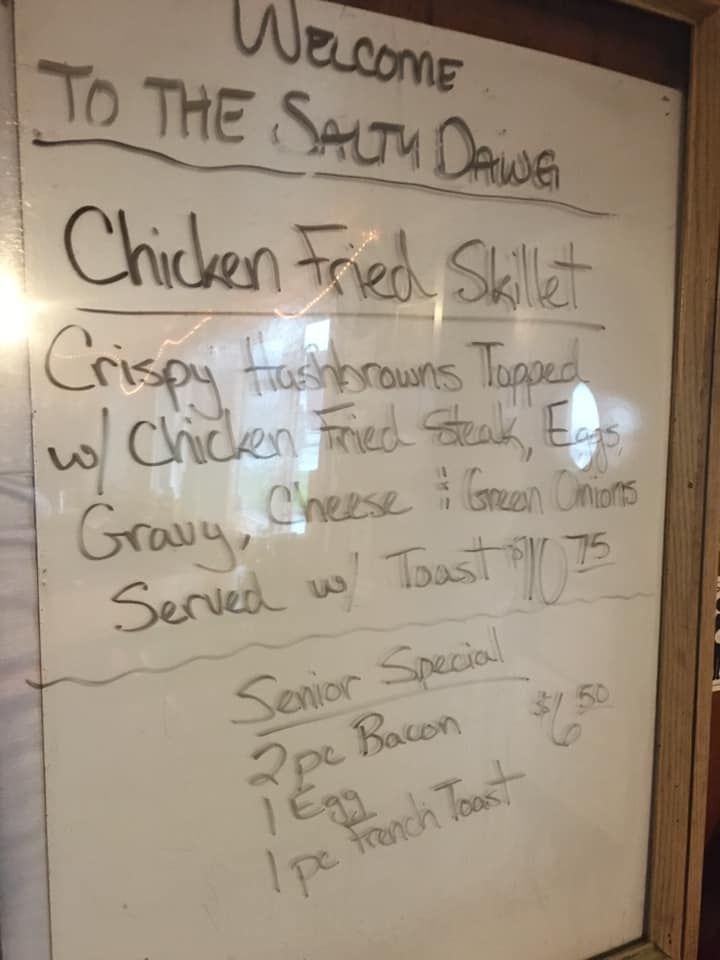 WELCOME
TO THE SALTY DAWG
Chicken Fried Skillet
Crispy Hashbrowns Topped
w/ Chicken Fried Steak, Eggs,
Gravy, Cheese & Green Onions
Served w/ Toast $10 75
Senior Special
2 pc Bacon $6 50
1 Egg
1 pc French Toast